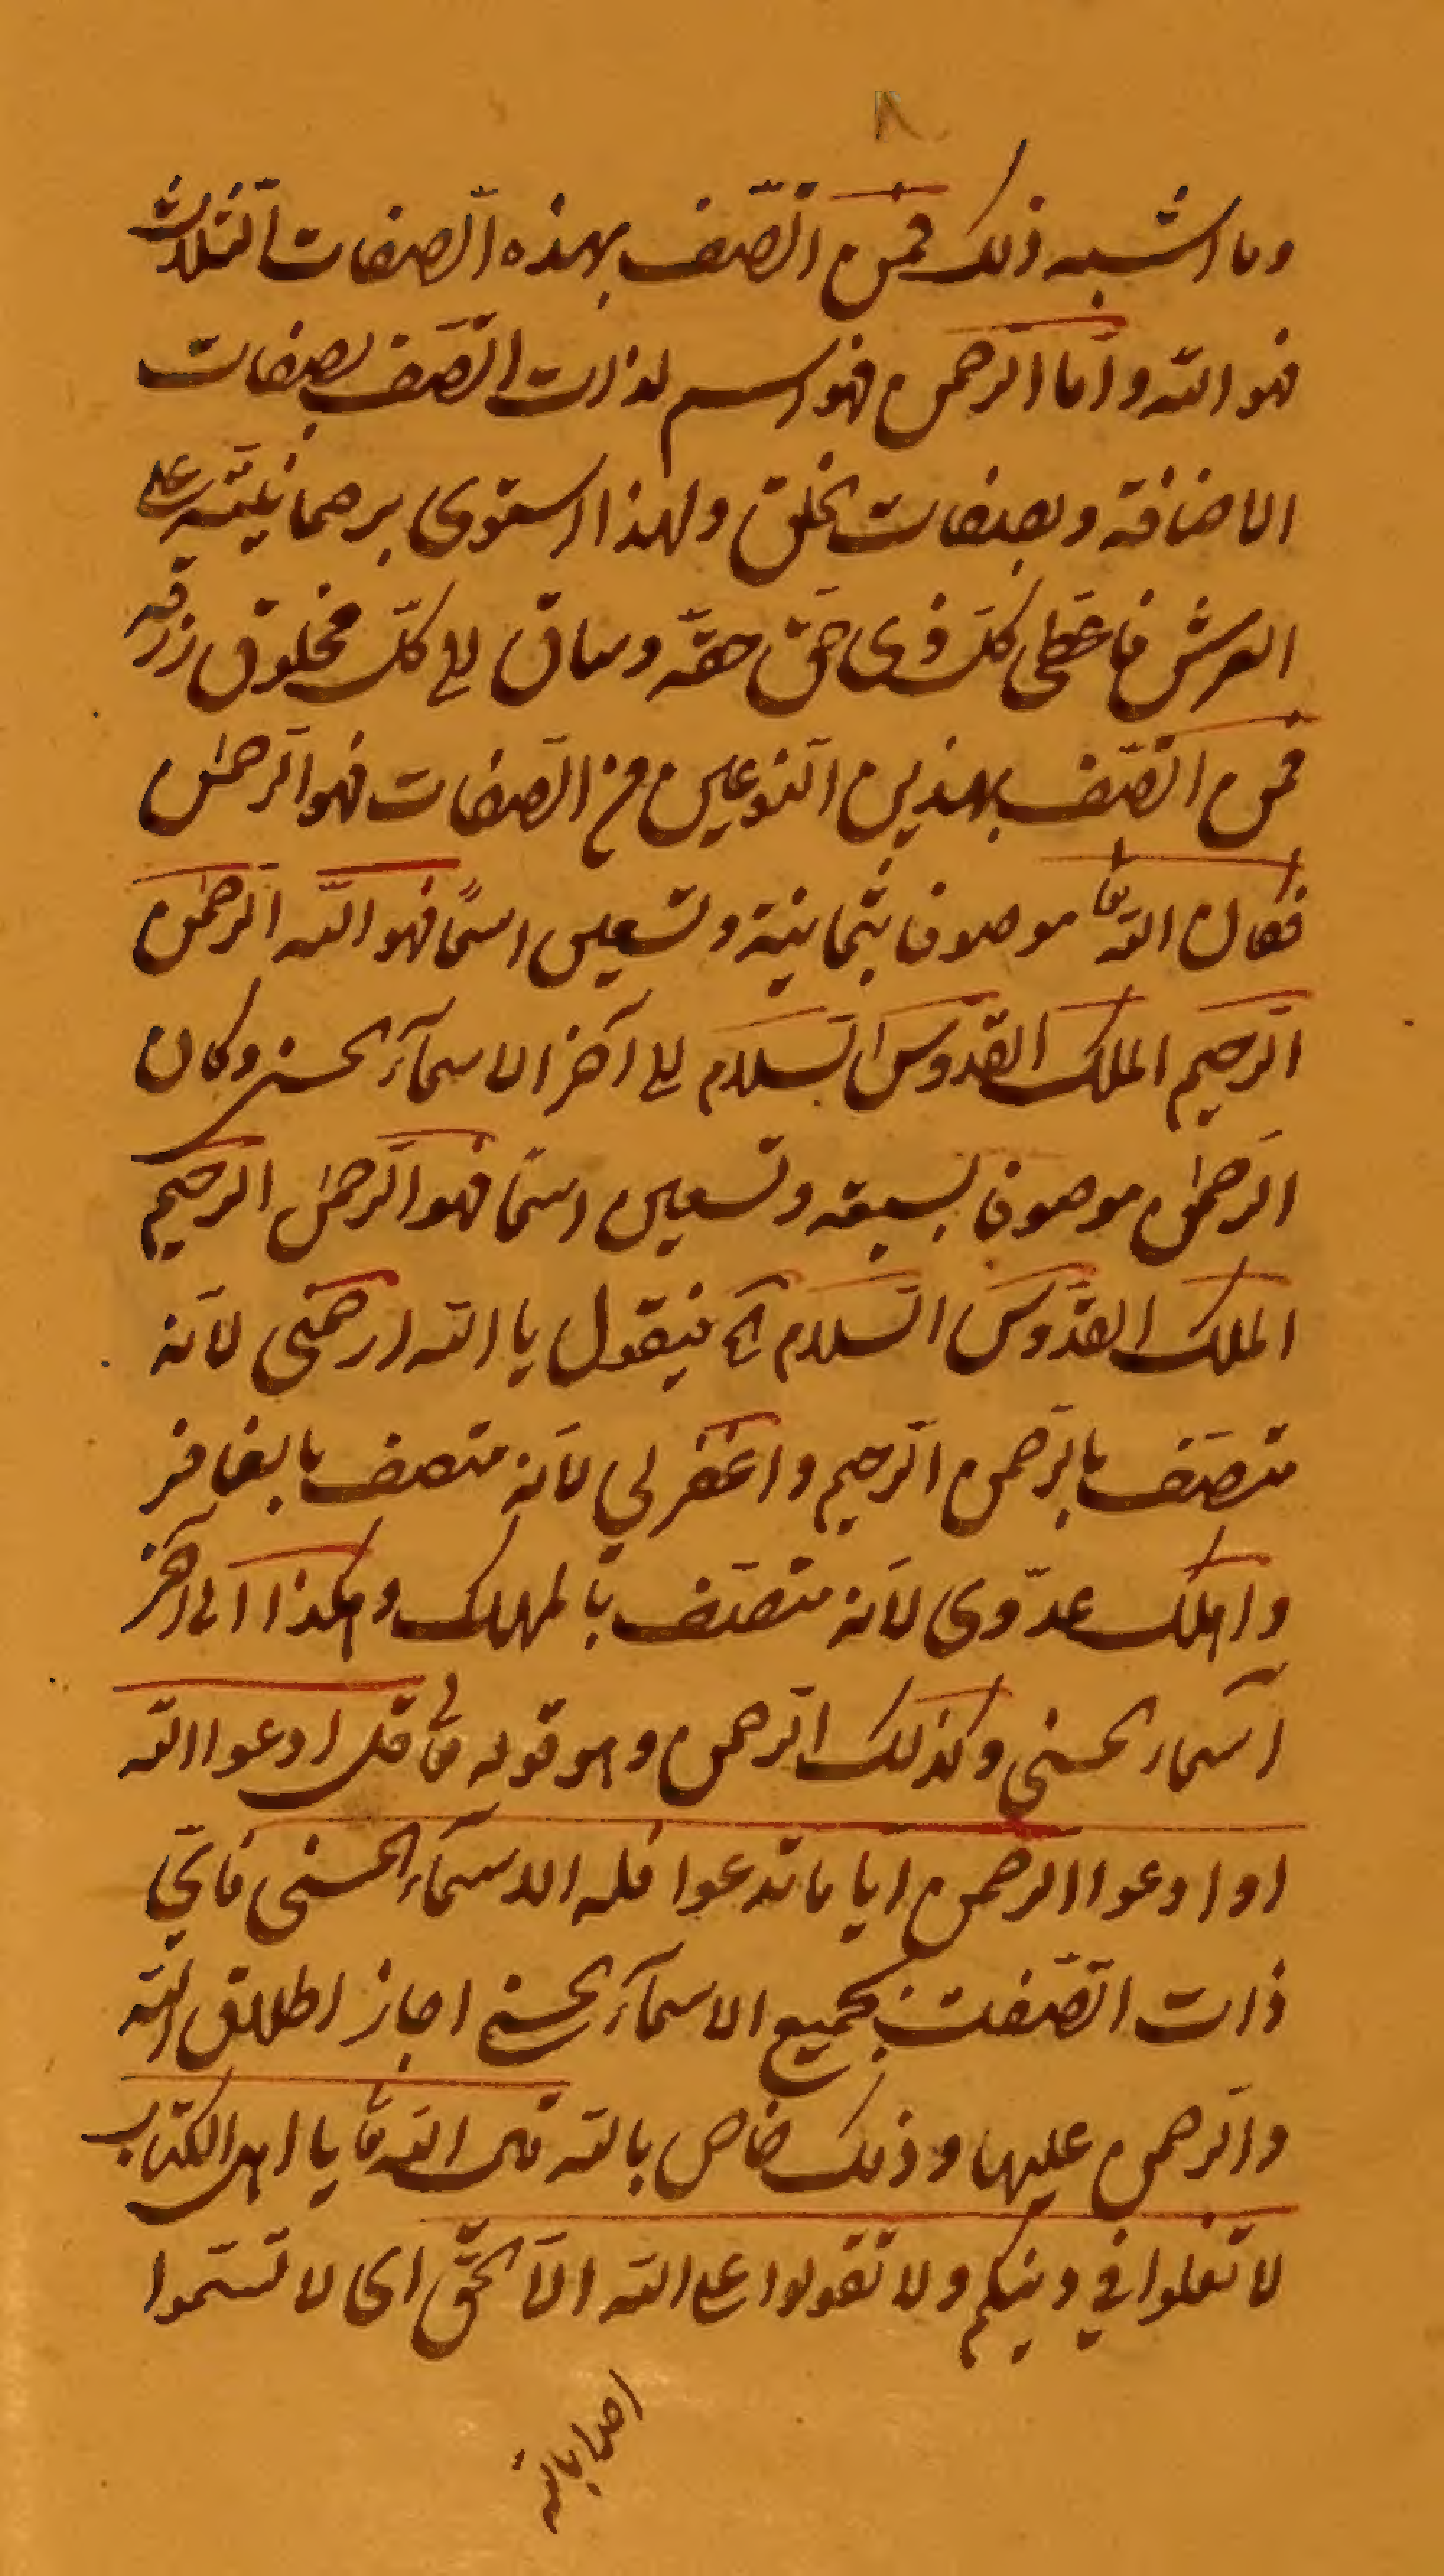 ٨
وما اشبه ذلك فمن اتّصف بهذه الّصفات الثلاث
فهو الله وامّا الرّحمن فهو اسم لذات اتّصف بصفات
الاضافة وبصفات الخلق ولهذا استوى برحمانيّته على
العرش فاعطى كلّ ذى حقّ حقّه وساق الى كلّ مخلوق رزقه
فمن اتّصف بهذين النّوعين من الصّفات فهو الرّحمن
فكان الله تعا موصوفا بثمانية وتسعين اسمًا فهو الله الرّحمن
الرّحيم الملك القدّوس السّلام الى آخر الاسمآء الحسنى وكان
الرّحمن موصوفا بسبعة وتسعين اسمًا فهو الرّحمن الرّحيم
الملك القدّوس السّلام الخ فيقول يا الله ارحمنى لانّه
متّصف بالرّحمن الرّحيم واغفر لي لانّه متصف بالغافر
واهلك عدّوى لانّه متّصف بالمهلك وهكذا الى آخر
اسماء الحسنى وكذلك الرّحمن وهو قوله تعا قل ادعوا الله
او ادعوا الرحمن ايا ما تدعوا فله الاسمآء الحسنى فايّ
ذات اتّصفت بجميع الاسمآء الحسنى اجاز اطلاق الله
والرّحمن عليها وذلك خاص بالله قال الله تعا يا اهل الكتاب
لا تغلوا في دينكم ولا تقولوا على الله الّا الحقّ اى لا تسّموا
احدا بالله